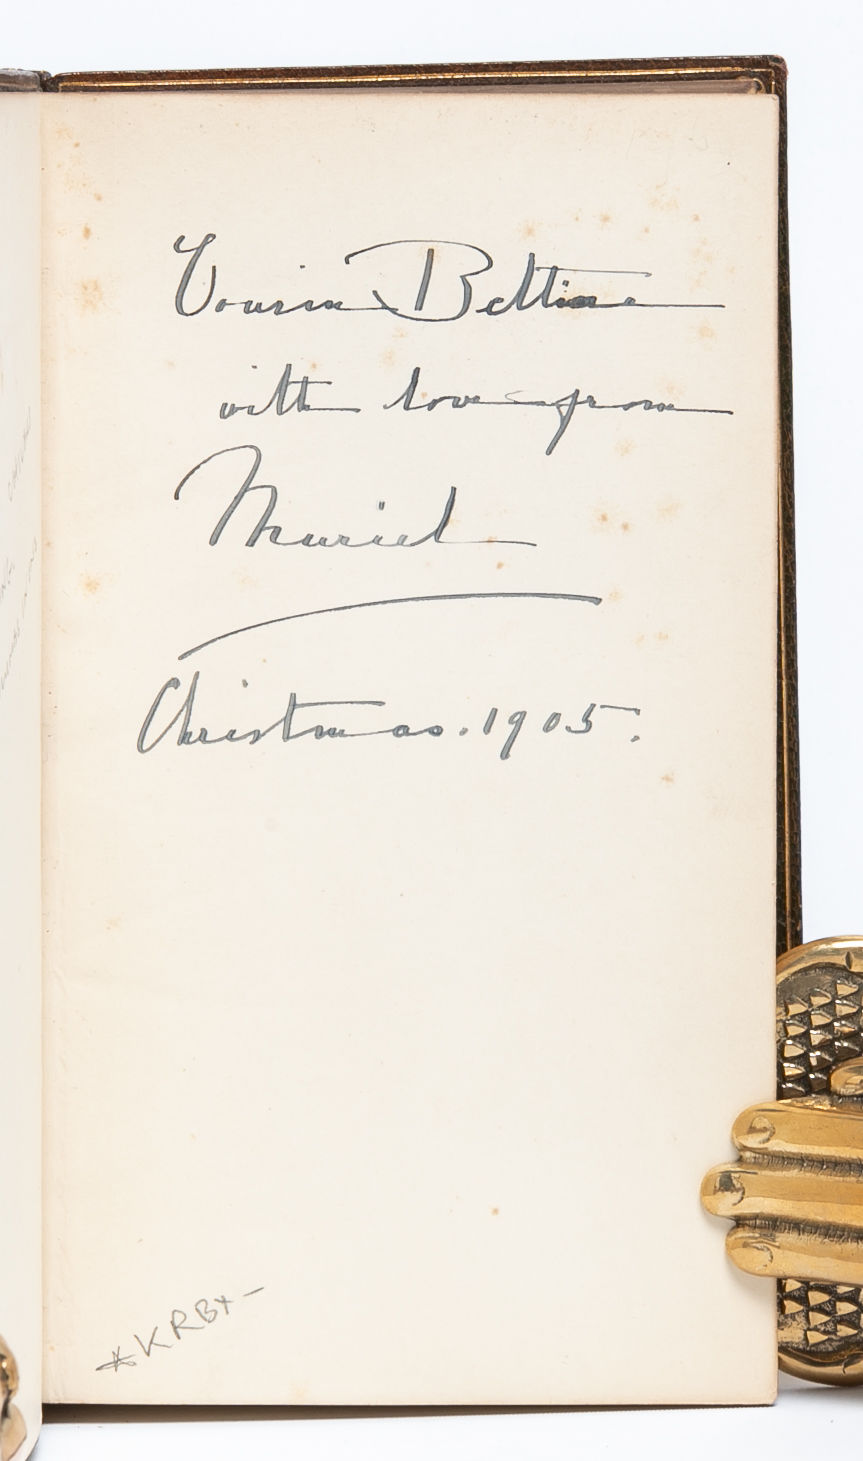 Cousin Bettine
with love from
Muriel
Christmas. 1905.
*KRBx-